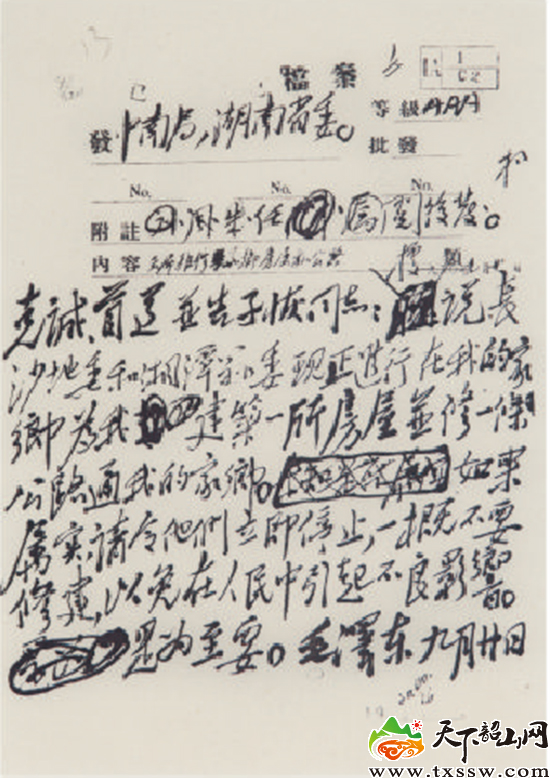 檔案
1
02
等級 AAA
發 中南局，湖南省委。
批發
No. No. No.
附註 小、周閱後發。
內容
標題
克誠、首道並告子恢同志：
說長
沙地委和湘潭县委现正進行在我的家
鄉为我建築一所房屋並修一條
公路通我的家鄉。
如果
属实，請令他們立即停止，一概不要
修建，以免在人民中引起不良影響。
是为至要。毛澤东 九月廿日
天下韶山网
www.txssw.com